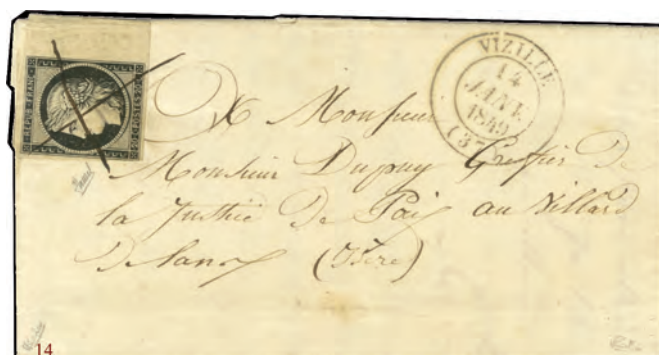 REPUB. FRANC.
20 C. POSTES 20 C.
VIZILLE
14
JANV.
1849
(37)
A Monsieur
Monsieur Dupuy Greffier de
la Justice de Paix au Villard
de Lans (Isère)
14